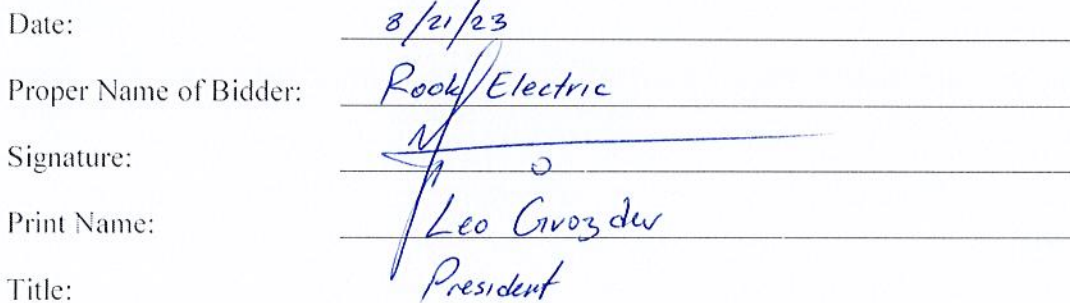 Date: 8/21/23
Proper Name of Bidder: Rook Electric
Signature:
Print Name: Leo Gvozdev
Title: President